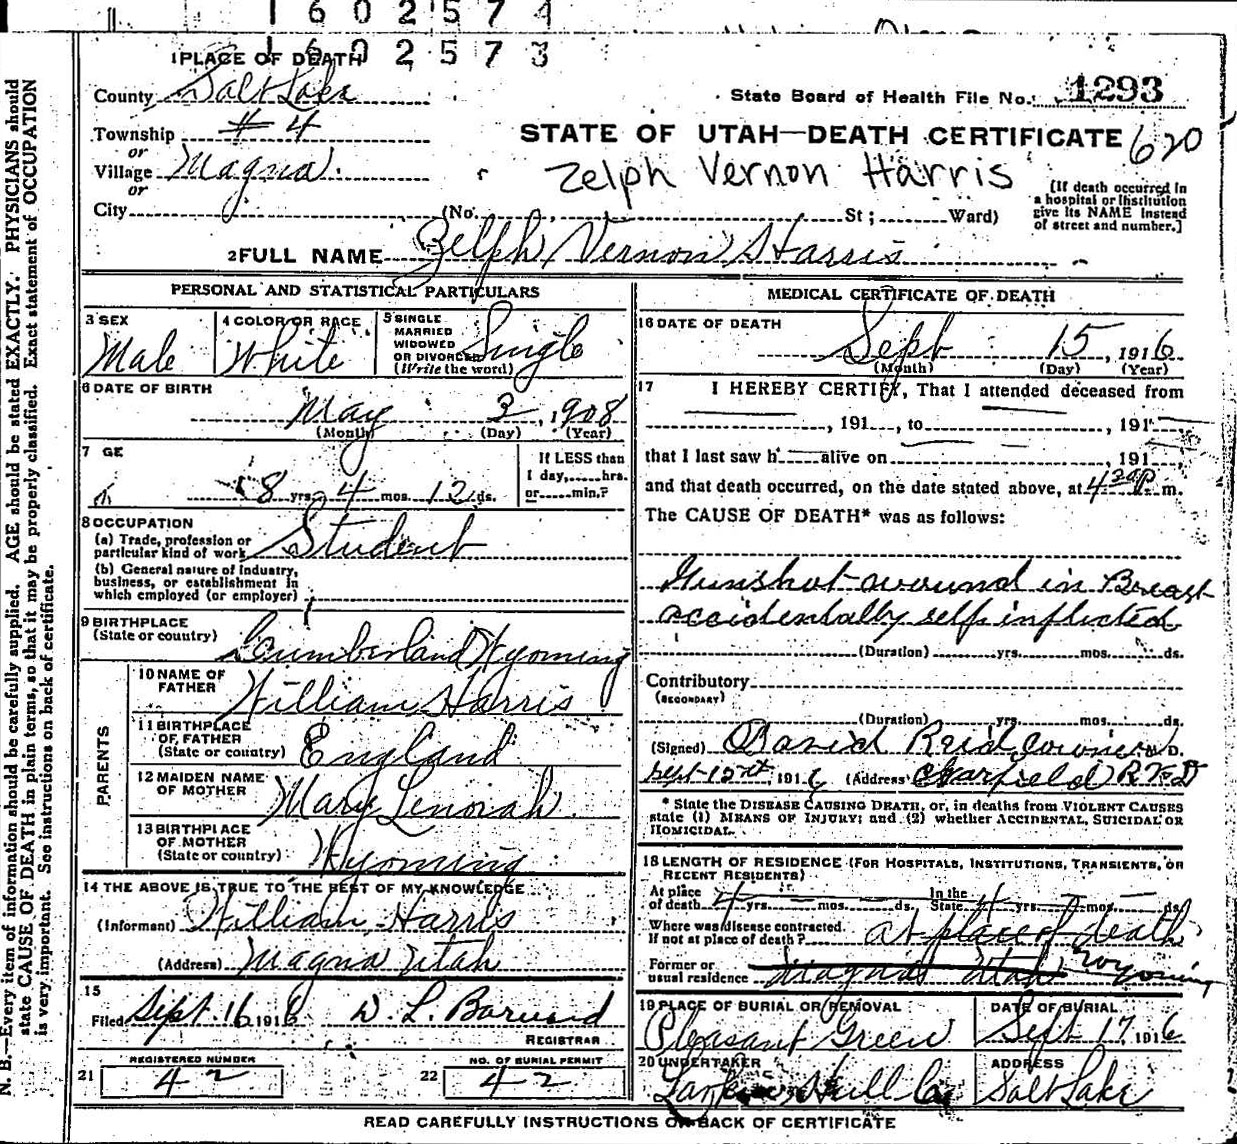 1602574
1602573
1 PLACE OF DEATH
County Salt Lake
State Board of Health File No. 1293
Township # 4
or
STATE OF UTAH—DEATH CERTIFICATE 620
Village Magna
Zelph Vernon Harris
or
City (No. St; Ward)
[If death occurred in a hospital or institution give its NAME instead of street and number.]
2 FULL NAME Zelph Vernon Harris
PERSONAL AND STATISTICAL PARTICULARS
3 SEX
Male
4 COLOR OR RACE
White
5 SINGLE MARRIED WIDOWED OR DIVORCED (Write the word)
Single
6 DATE OF BIRTH
May 3, 1908
(Month) (Day) (Year)
7 GE
8 yrs. 4 mos. 12 ds.
If LESS than 1 day, hrs. or min.?
8 OCCUPATION
(a) Trade, profession or particular kind of work Student
(b) General nature of industry, business, or establishment in which employed (or employer)
9 BIRTHPLACE
(State or country) Cumberland Wyoming
PARENTS
10 NAME OF FATHER William Harris
11 BIRTHPLACE OF FATHER (State or country) England
12 MAIDEN NAME OF MOTHER Mary Lenorah
13 BIRTHPLACE OF MOTHER (State or country) Wyoming
14 THE ABOVE IS TRUE TO THE BEST OF MY KNOWLEDGE
(Informant) William Harris
(Address) Magna Utah
15
Filed Sept. 16 1916 D. L. Barnard
REGISTRAR
REGISTERED NUMBER
21 42
NO. OF BURIAL PERMIT
22 42
MEDICAL CERTIFICATE OF DEATH
16 DATE OF DEATH
Sept 15, 1916
(Month) (Day) (Year)
17 I HEREBY CERTIFY, That I attended deceased from
, 191 , to , 191
that I last saw h alive on , 191 ,
and that death occurred, on the date stated above, at 4 30 P. m.
The CAUSE OF DEATH* was as follows:
Gunshot wound in Breast
accidentally self inflicted
(Duration) yrs. mos. ds.
Contributory
(SECONDARY)
(Duration) yrs. mos. ds.
(Signed) David Reid, Coroner M. D.
Sept 15th, 1916 (Address) Garfield R.F.D
* State the DISEASE CAUSING DEATH, or, in deaths from VIOLENT CAUSES
state (1) MEANS OF INJURY; and (2) whether ACCIDENTAL, SUICIDAL OR
HOMICIDAL.
18 LENGTH OF RESIDENCE (FOR HOSPITALS, INSTITUTIONS, TRANSIENTS, OR
RECENT RESIDENTS)
At place of death 4 yrs. mos. ds. In the State 4 yrs. mos. ds.
Where was disease contracted, If not at place of death? at place of death
Former or usual residence Magna Utah Wyoming
19 PLACE OF BURIAL OR REMOVAL
Pleasant Green
DATE OF BURIAL
Sept 17, 1916
20 UNDERTAKER
Hull Co
ADDRESS
Salt Lake
READ CAREFULLY INSTRUCTIONS ON BACK OF CERTIFICATE
N. B.—Every item of information should be carefully supplied. AGE should be stated EXACTLY. PHYSICIANS should
state CAUSE OF DEATH in plain terms, so that it may be properly classified. Exact statement of OCCUPATION
is very important. See instructions on back of certificate.